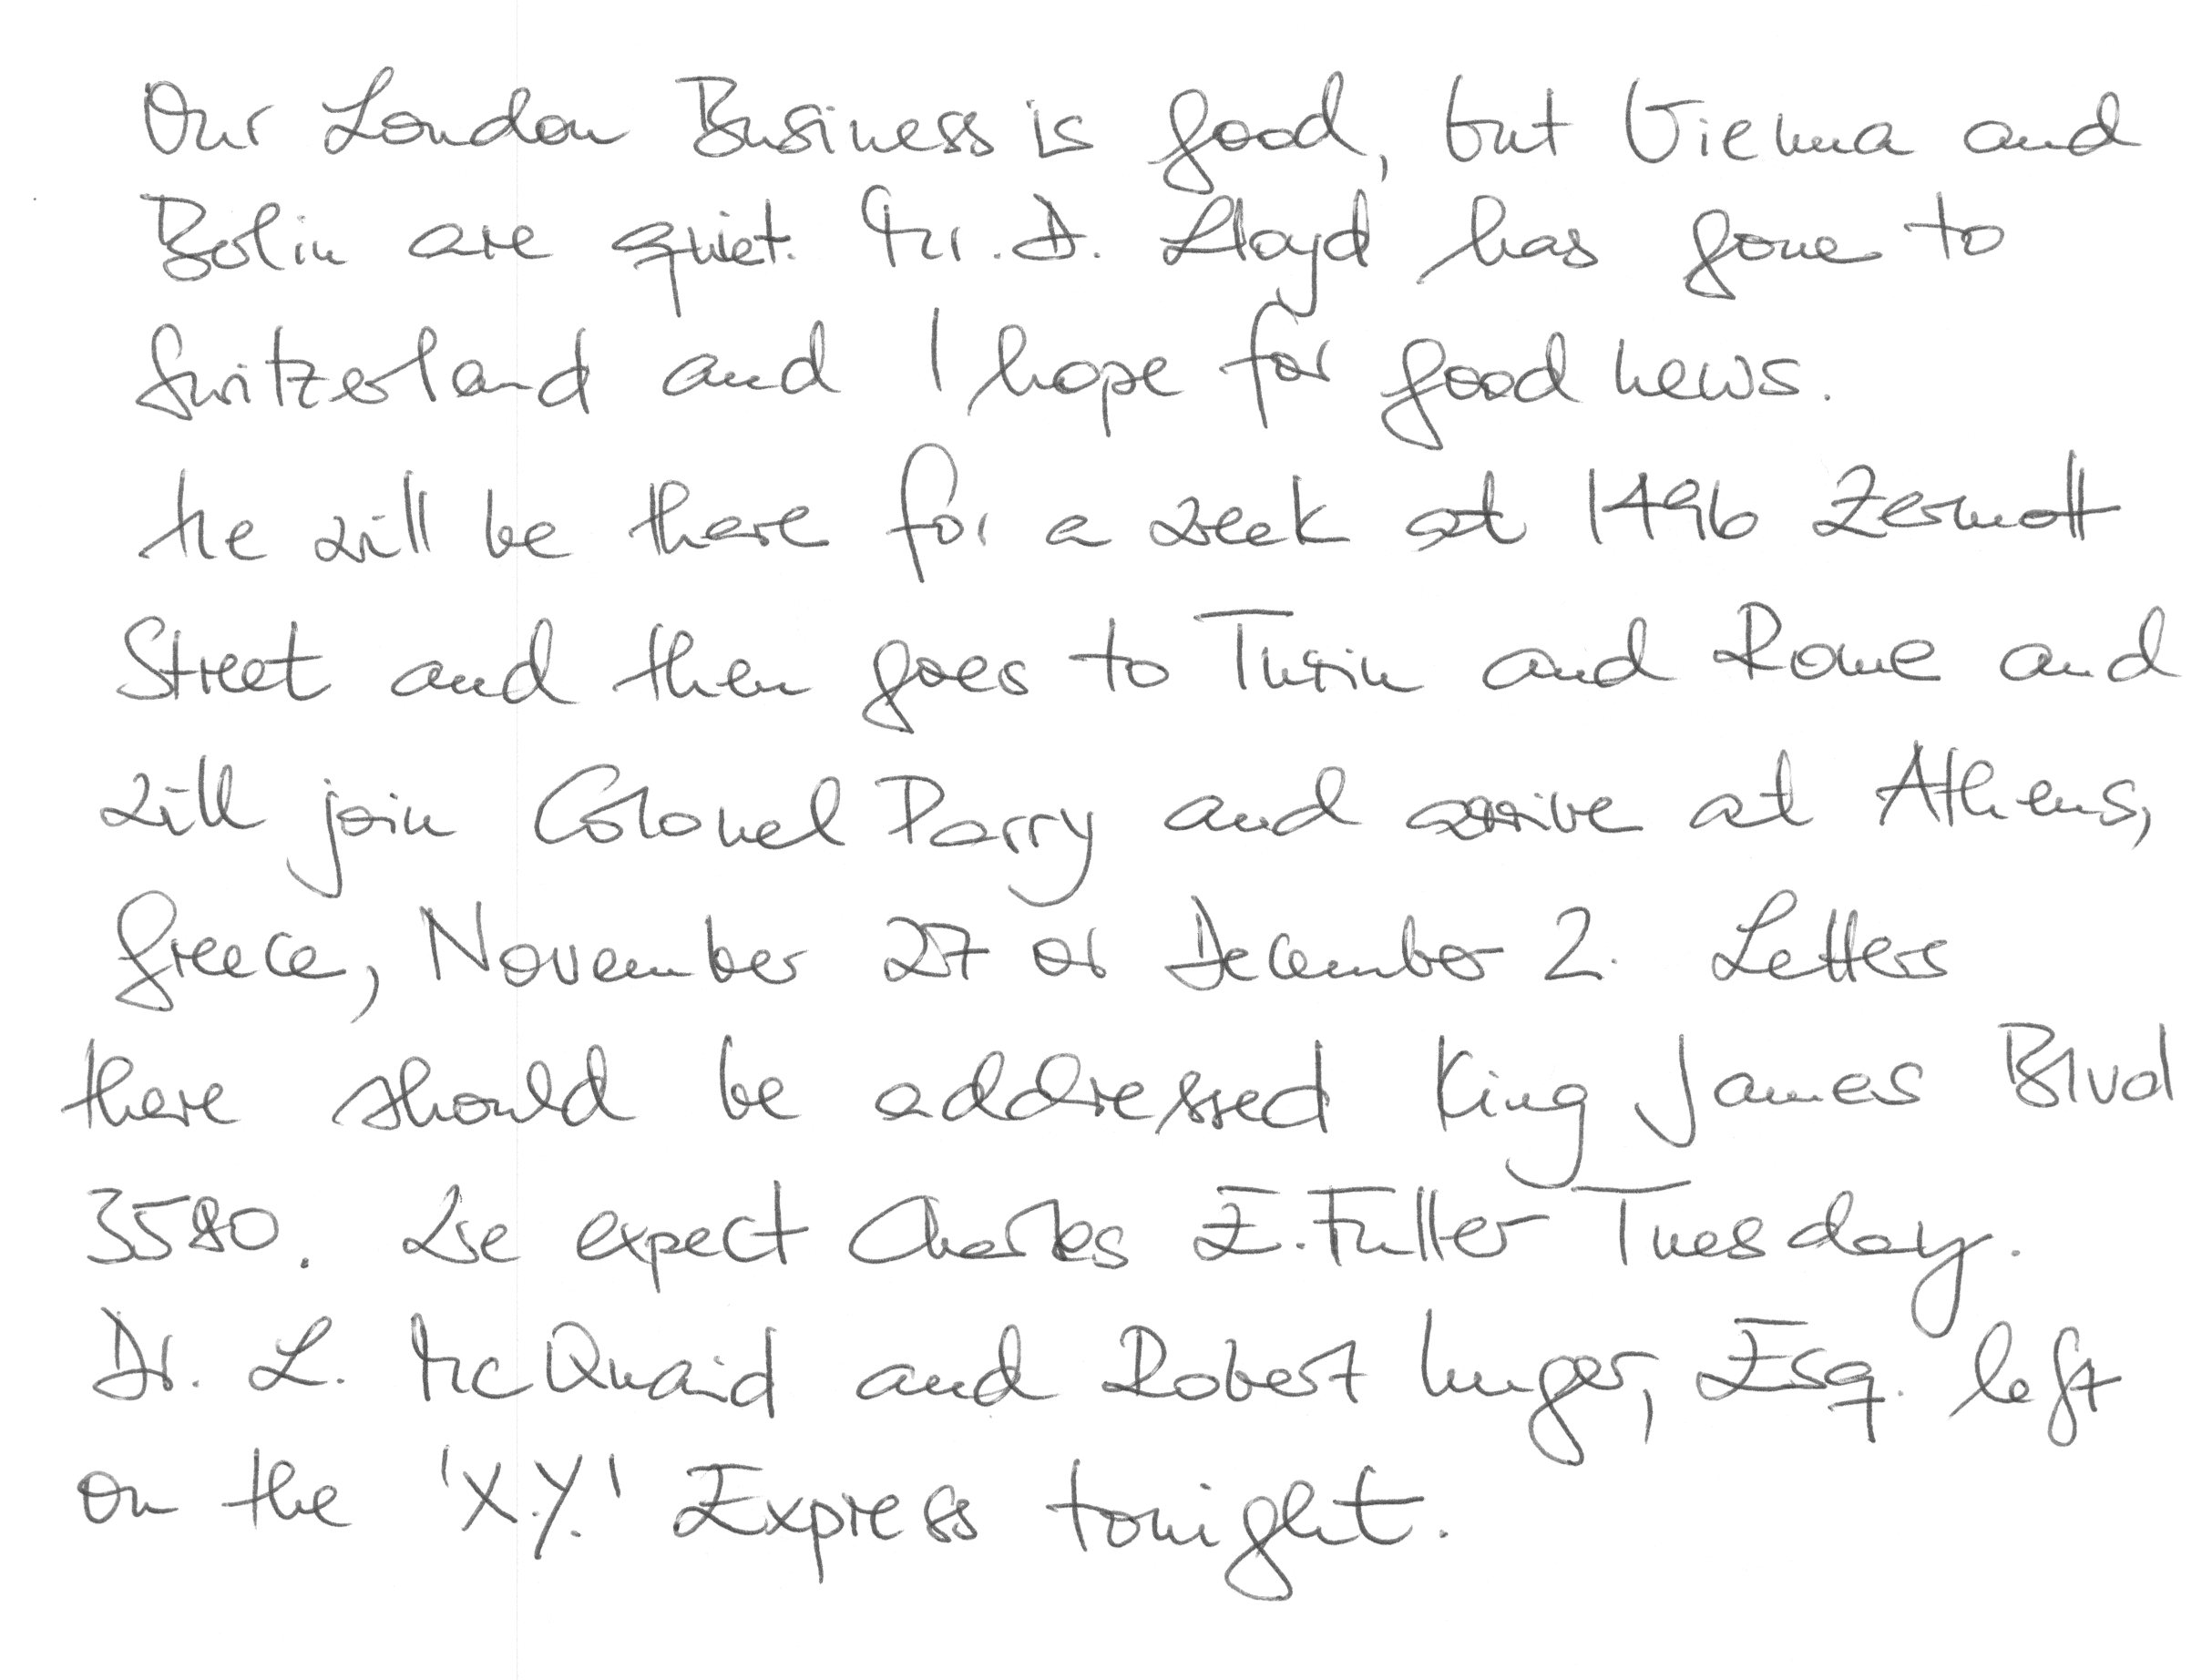 Our London Business is good, but Vienna and
Berlin are quiet. Mr. D. Lloyd has gone to
Switzerland and I hope for good news.
He will be there for a week at 1496 Zermott
Street and then goes to Turin and Rome and
will join Colonel Parry and arrive at Athens,
Greece, November 27 or December 2. Letters
there should be addressed King James Blvd
3580. We expect Charles E. Fuller Tuesday.
Dr. L. McQuaid and Robert Unger, Esq. left
on the 'X.Y.' Express tonight.